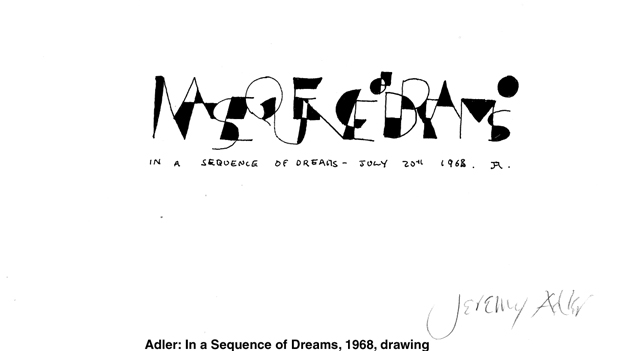 IN A SEQUENCE OF DREAMS
IN A SEQUENCE OF DREAMS – JULY 20TH 1968. JA.
Jeremy Adler
Adler: In a Sequence of Dreams, 1968, drawing